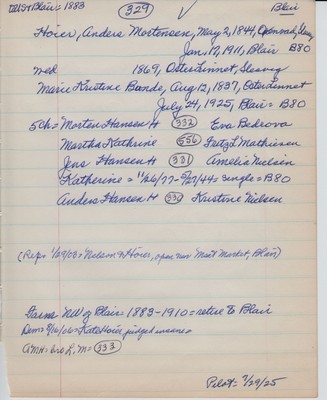 Blair = 1883 (329) Blair
Hoier, Anders Mortensen, May 2, 1844, Slesvig
Jan, 17, 1911, Blair B80
wed 1869, OsterLinnet, Slesvig
Marie Kristine Bonde, Aug 12, 1837, OsterLinnet
July 24, 1925, Blair = B80
5 Ch = Morten Hansen H (332) Eva Bedrova
Martha Kathrine (556) Fritz L Mathiesen
Jens Hansen H (331) Amelia Nielsen
Katherine = 11/26/77 - 5/27/44 = single = B80
Anders Hansen H (330) Kristine Nielsen
(Rep = 1/29/03 = Nelson & Hoier, open new Meat Market, Blair)
Farm NW of Blair = 1883-1910 = retire to Blair
Dem = 8/16/06 = Kate Hoier judged insane =
AMH = bro L.M = (333)
Pilot = 7/29/25